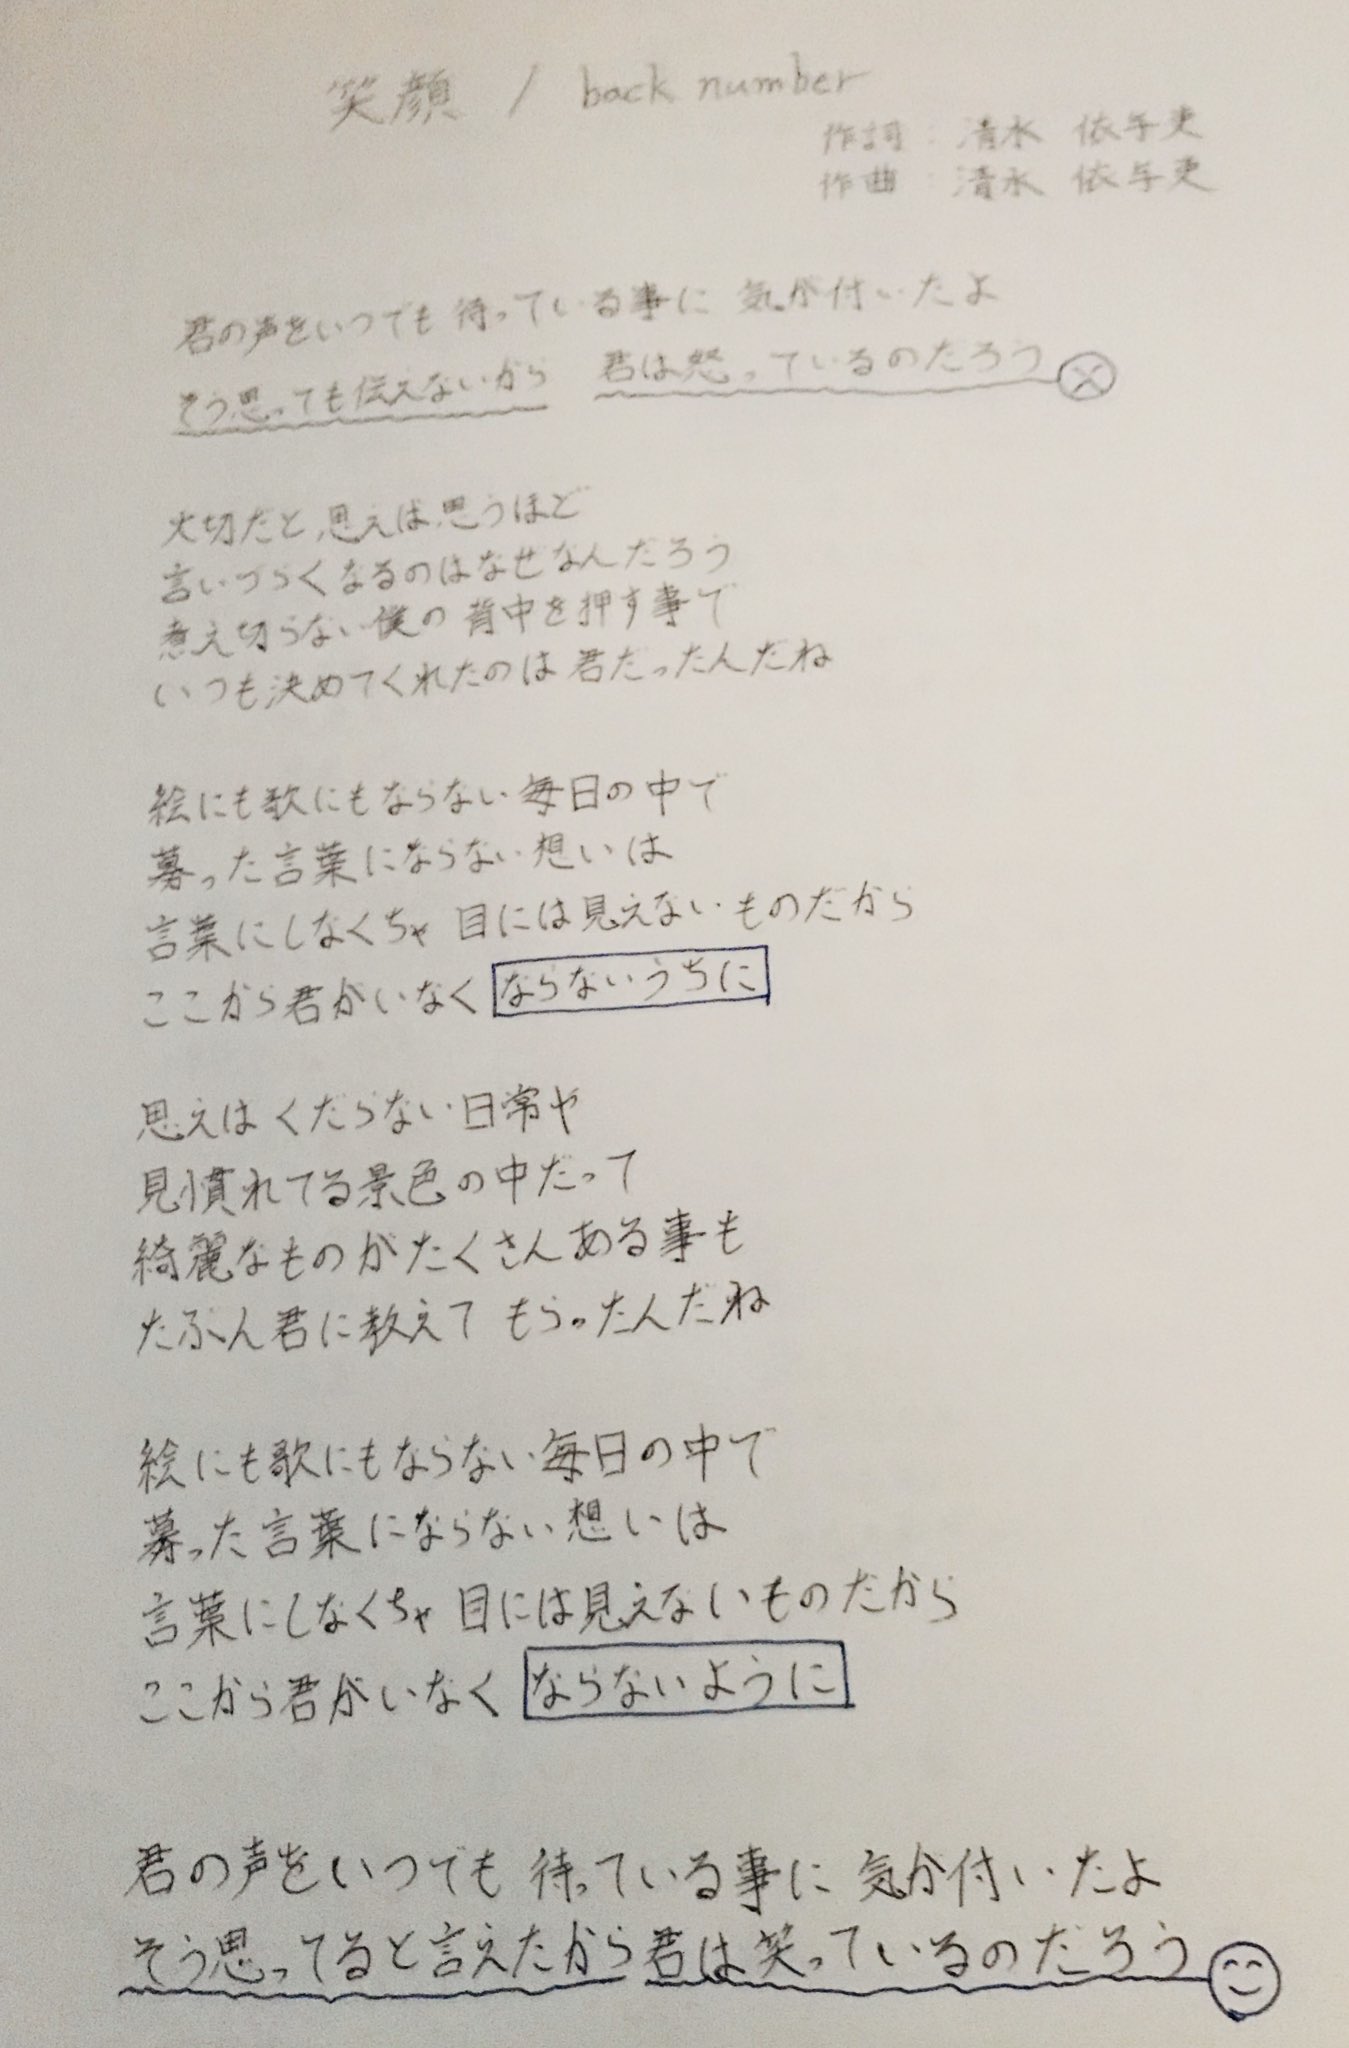 笑顔 / back number
作詞：清水 依与吏
作曲：清水 依与吏
君の声をいつでも 待っている事に 気が付いたよ
そう思っても伝えないから 君は怒っているのだろう
大切だと思えば思うほど
言いづらくなるのはなぜなんだろう
煮え切らない僕の 背中を押す事で
いつも決めてくれたのは 君だったんだね
絵にも歌にもならない毎日の中で
募った言葉にならない想いは
言葉にしなくちゃ 目には見えないものだから
ここから君がいなくならないうちに
思えばくだらない日常や
見慣れてる景色の中だって
綺麗なものがたくさんある事も
たぶん君に教えて もらったんだね
絵にも歌にもならない毎日の中で
募った言葉にならない想いは
言葉にしなくちゃ 目には見えないものだから
ここから君がいなくならないように
君の声をいつでも 待っている事に 気が付いたよ
そう思ってると言えたから君は笑っているのだろう